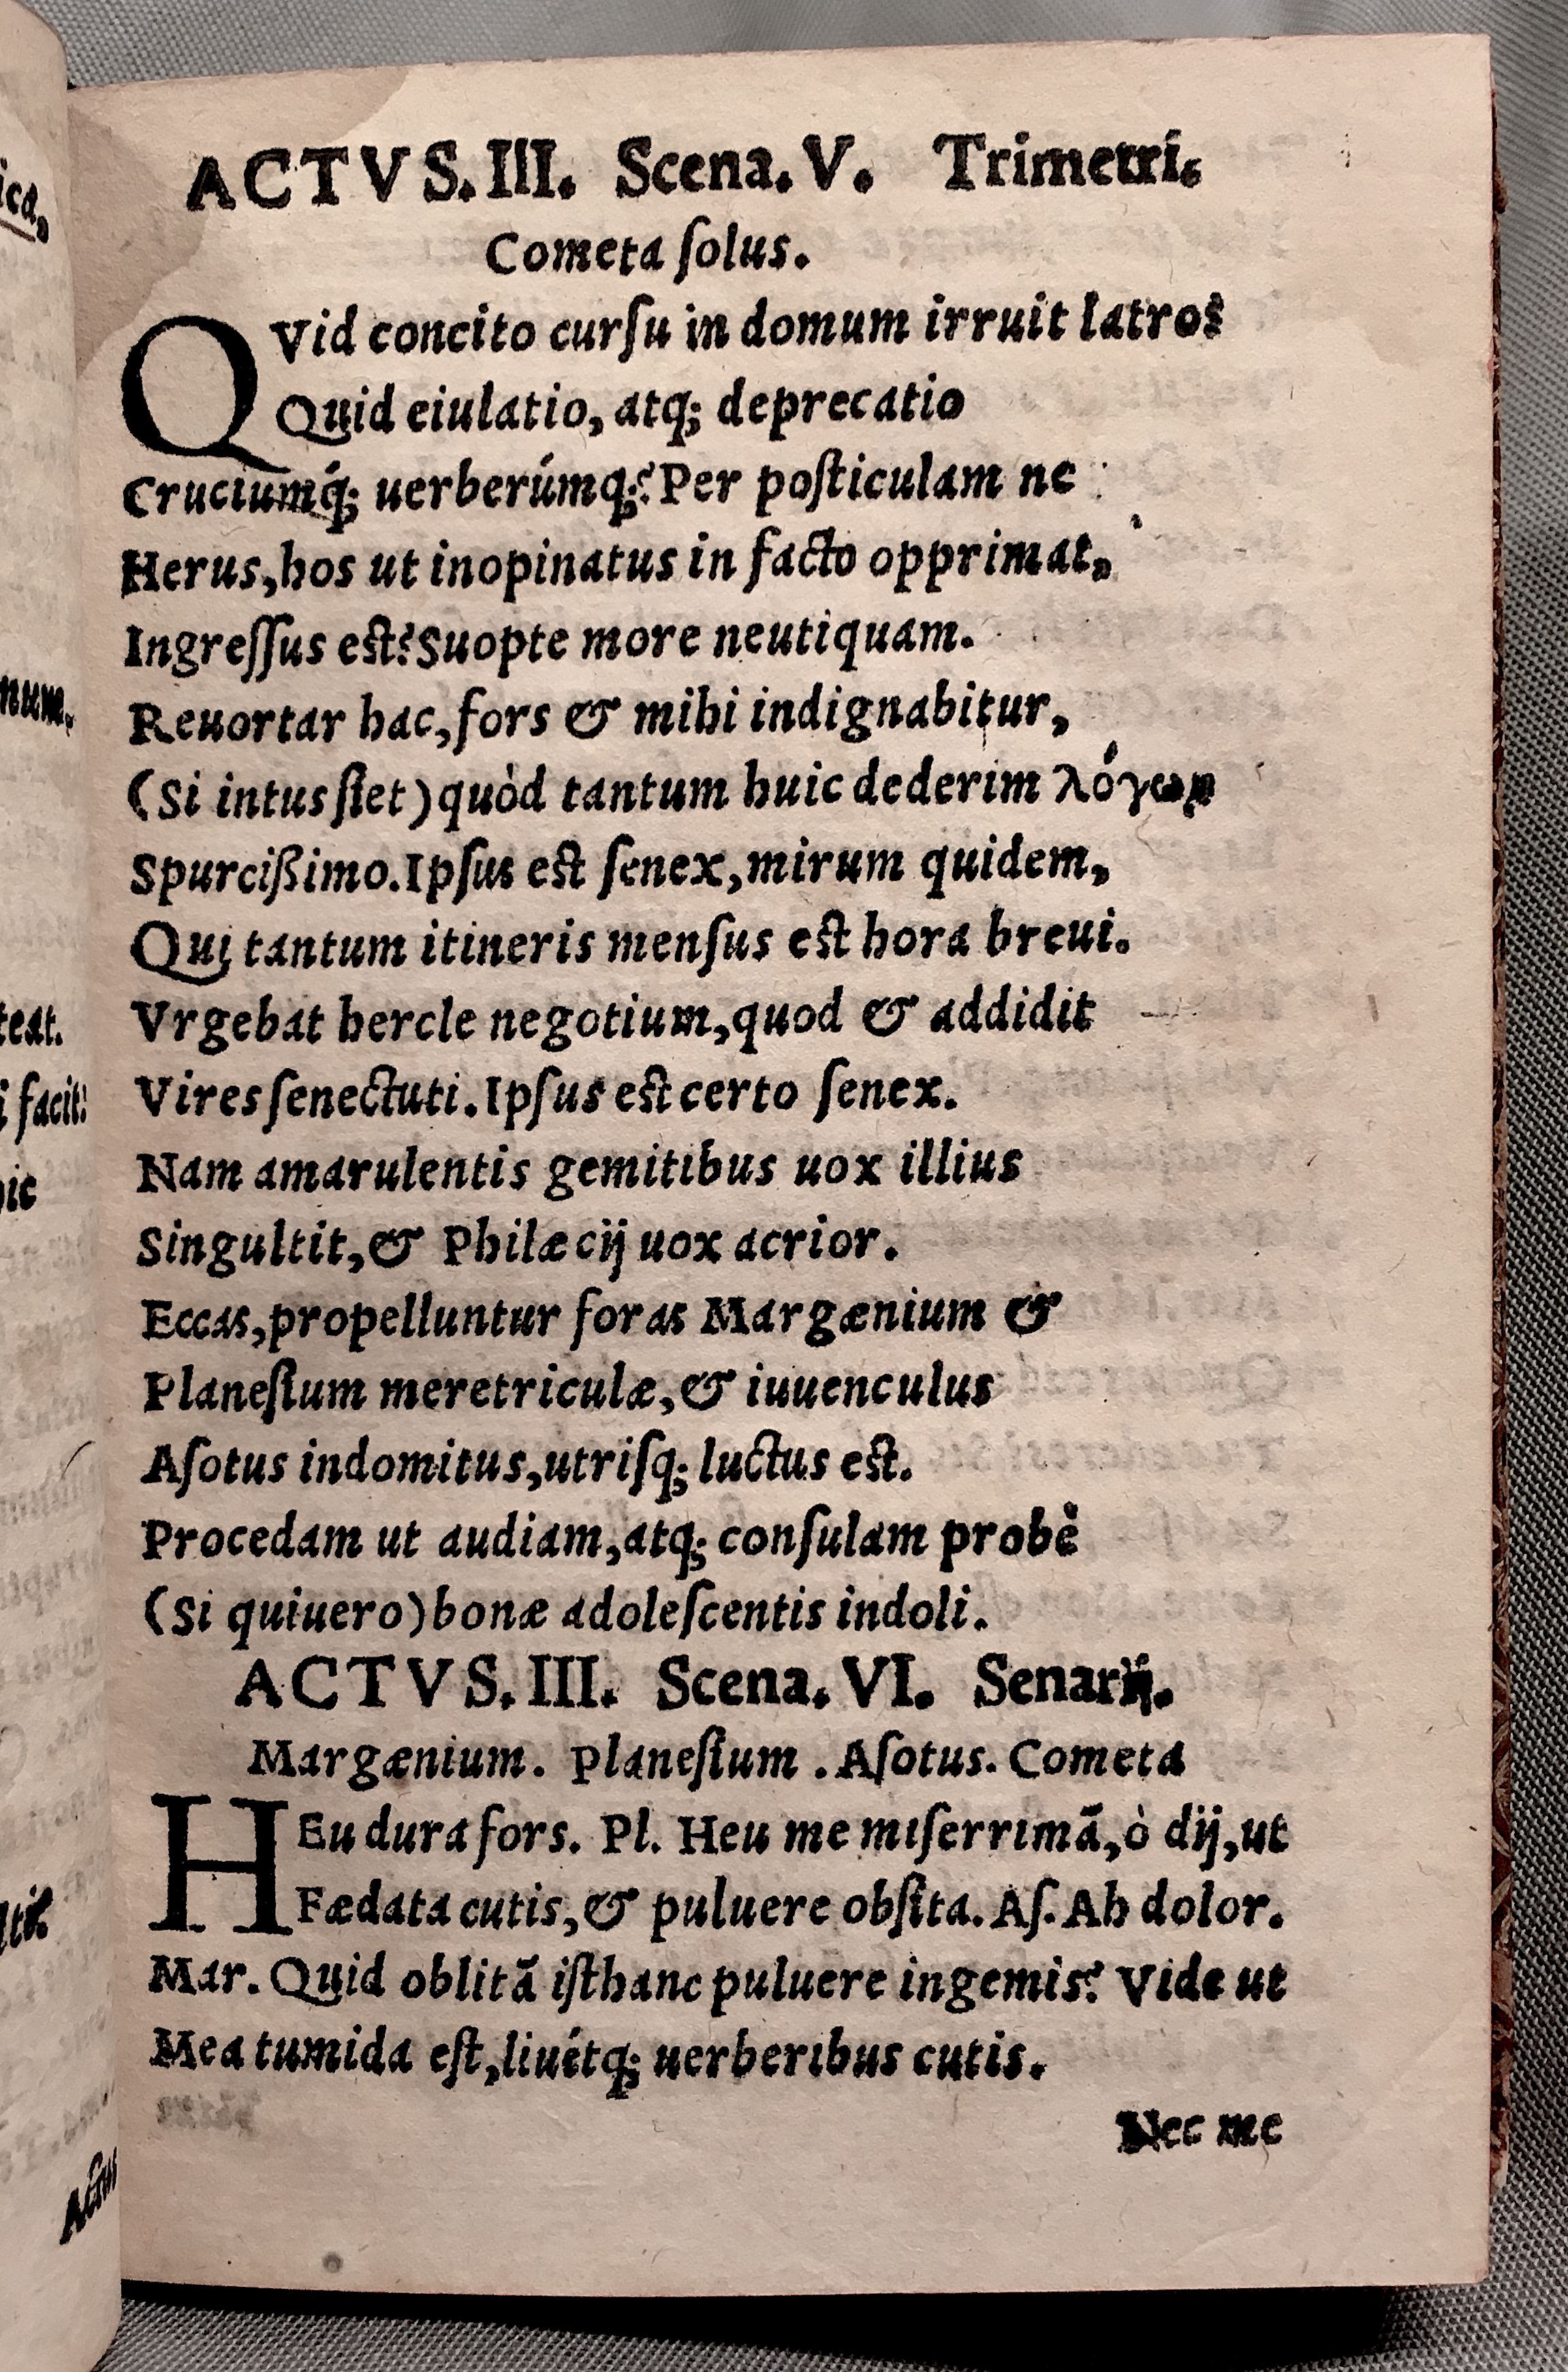 ACTVS.III. Scena.V. Trimetri.
Cometa ſolus.
QVid concito curſu in domum irruit latro?
Quid eiulatio, atq; deprecatio
Cruciumq́; uerberúmq;? Per poſticulam ne
Herus, hos ut inopinatus in facto opprimat,
Ingreſſus est? Suopte more neutiquam.
Reuortar hac, fors & mihi indignabitur,
(Si intus ſiet) quòd tantum huic dederim λόγωμ
Spurcißimo. Ipſus est ſenex, mirum quidem,
Qui tantum itineris menſus est hora breui.
Vrgebat hercle negotium, quod & addidit
Vires ſenectuti. Ipſus est certo ſenex.
Nam amarulentis gemitibus uox illius
Singultit, & Philæcij uox acrior.
Eccas, propelluntur foras Margænium &
Planeſium meretriculæ, & iuuenculus
Aſotus indomitus, utriſq; luctus est.
Procedam ut audiam, atq; conſulam probè
(Si quiuero) bonæ adoleſcentis indoli.
ACTVS.III. Scena.VI. Senarij.
Margænium. Planeſium. Aſotus. Cometa
HEu dura fors. Pl. Heu me miſerrimã, ò dij, ut
Fædata cutis, & puluere obſita. Aſ. Ah dolor.
Mar. Quid oblitã iſthanc puluere ingemis? Vide ut
Mea tumida eſt, liuétq; uerberibus cutis.
Nec me
ica,
teat.
i facit:
Actus